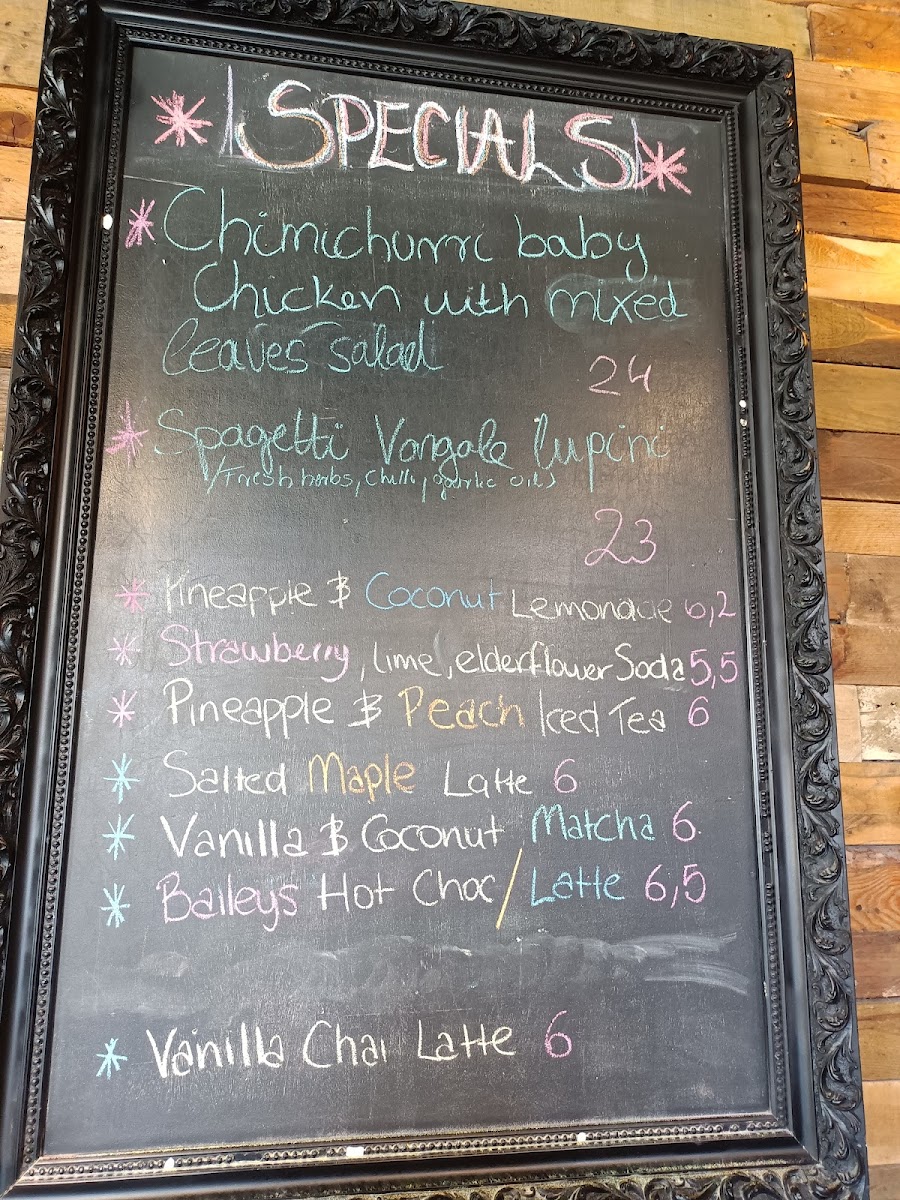 SPECIALS
Chimichurri baby
Chicken with mixed
leaves salad
24
Spagetti Vongole lupini
Fresh herbs, chilli, garlic oil
23
Pineapple & Coconut Lemonade 6,2
Strawberry, lime, elderflower Soda 5,5
Pineapple & Peach Iced Tea 6
Salted Maple Latte 6
Vanilla & Coconut Matcha 6
Baileys Hot Choc/Latte 6,5
Vanilla Chai Latte 6